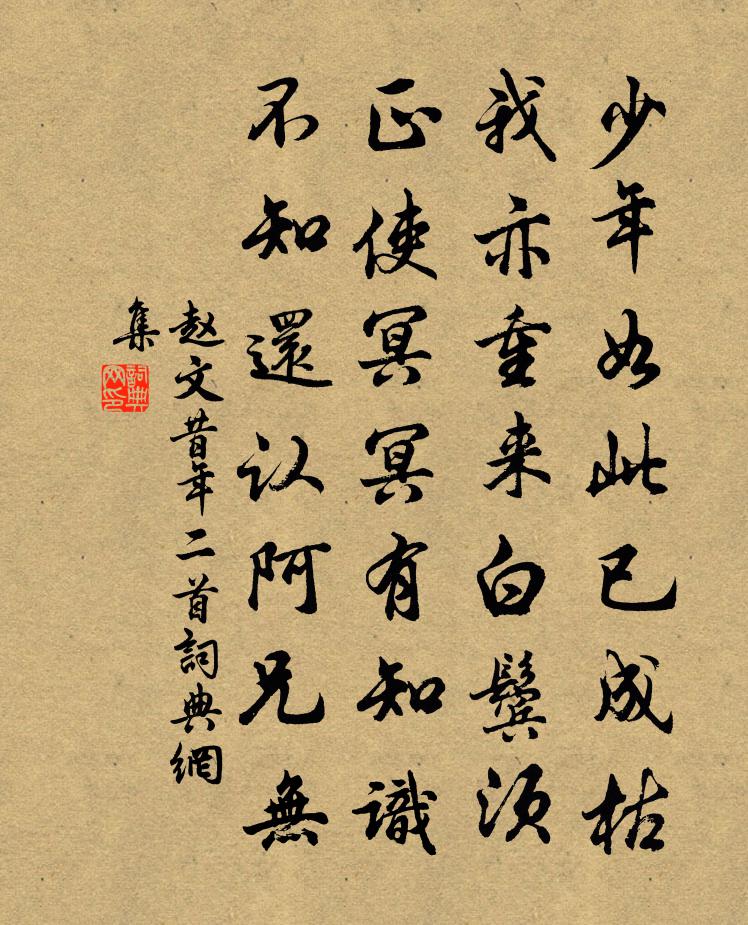 少年如此已成枯
我亦重来白鬓须
正使冥冥有知識
不知還认阿兄無
赵文昔年二首詞典網
集
詞典
网印